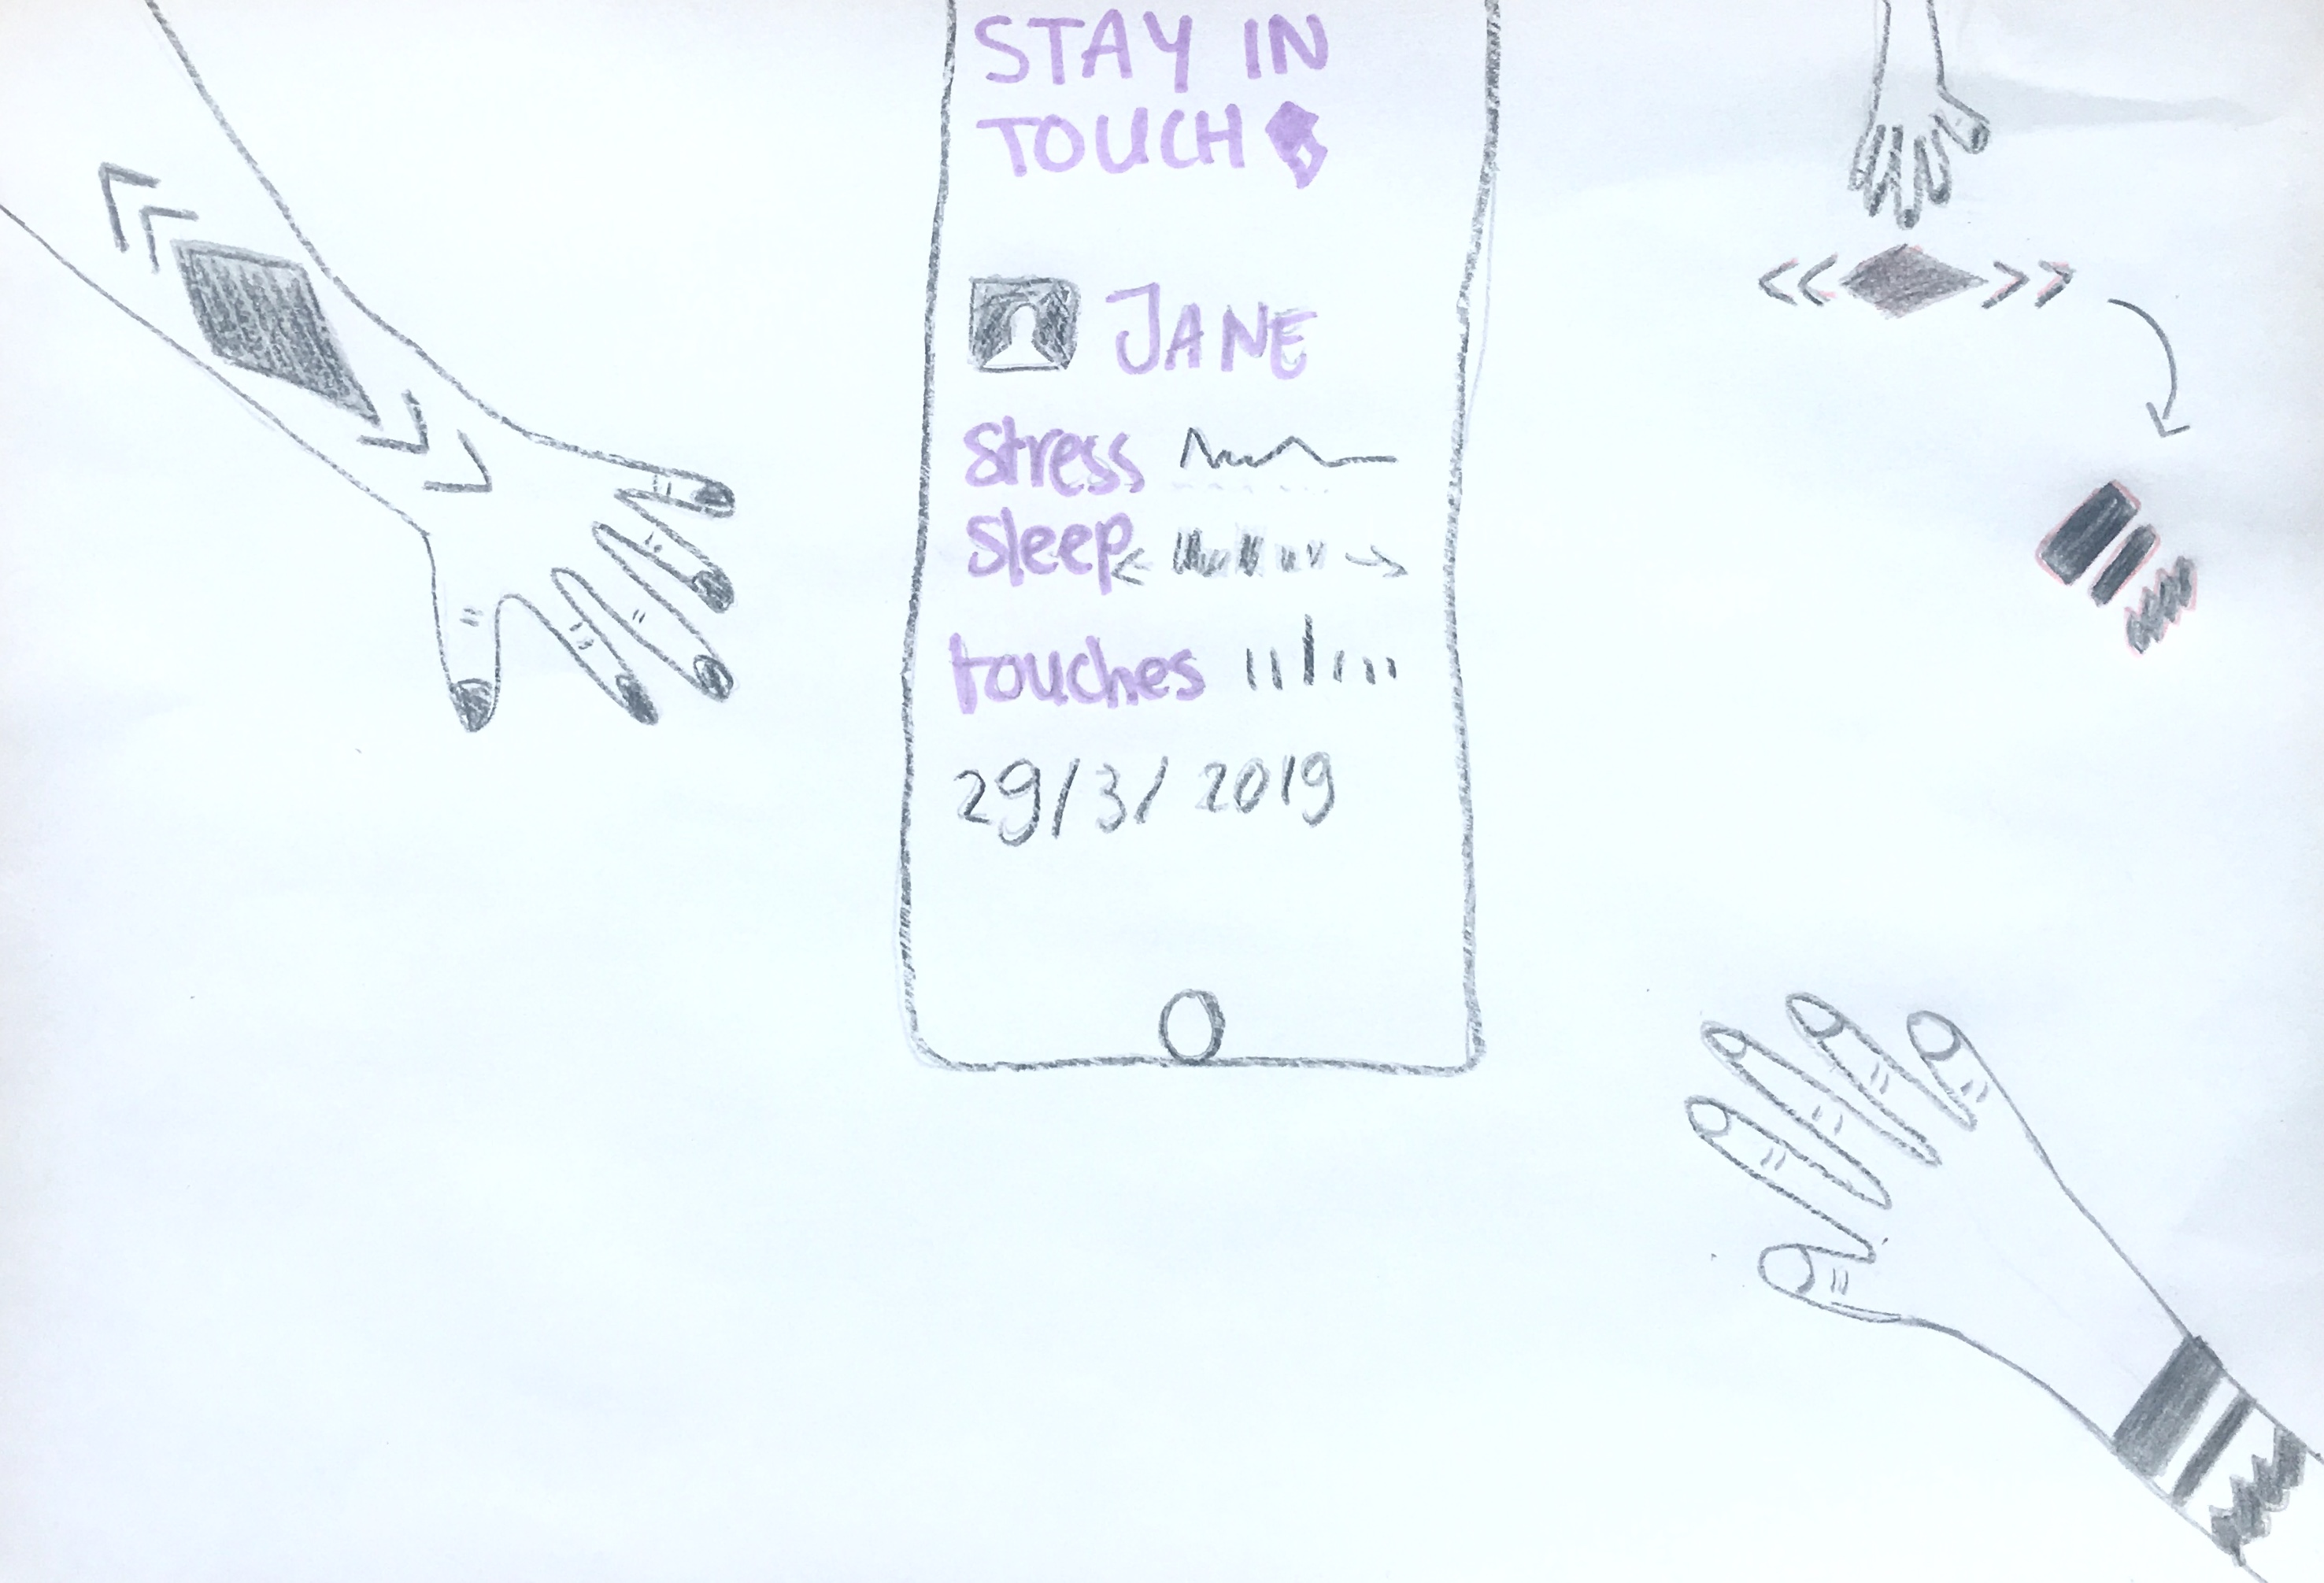 STAY IN
TOUCH
JANE
stress
sleep
touches
29/3/2019